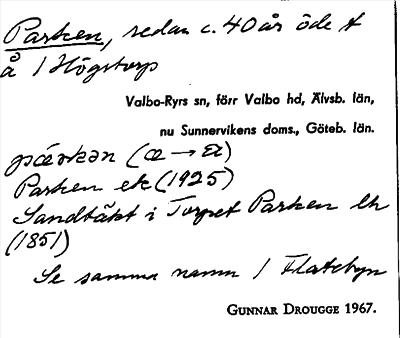 Parken, sedan c. 40 år öde t
å / Högstorp
Valbo-Ryrs sn, förr Valbo hd, Älvsb. län,
nu Sunnervikens doms., Göteb. län.
Parken ek (1925)
Sandtäkt i Torpet Parken lh
(1851)
Se samma namn / Flatebyn
GUNNAR DROUGGE 1967.